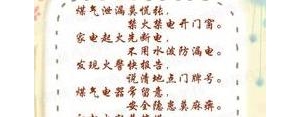 煤气泄漏莫慌张，
禁火禁电开门窗。
家电起火先断电，
不用水泼防漏电。
发现火警快报告，
说清地点门牌号。
煤气电器常留意，
安全隐患莫麻痹。